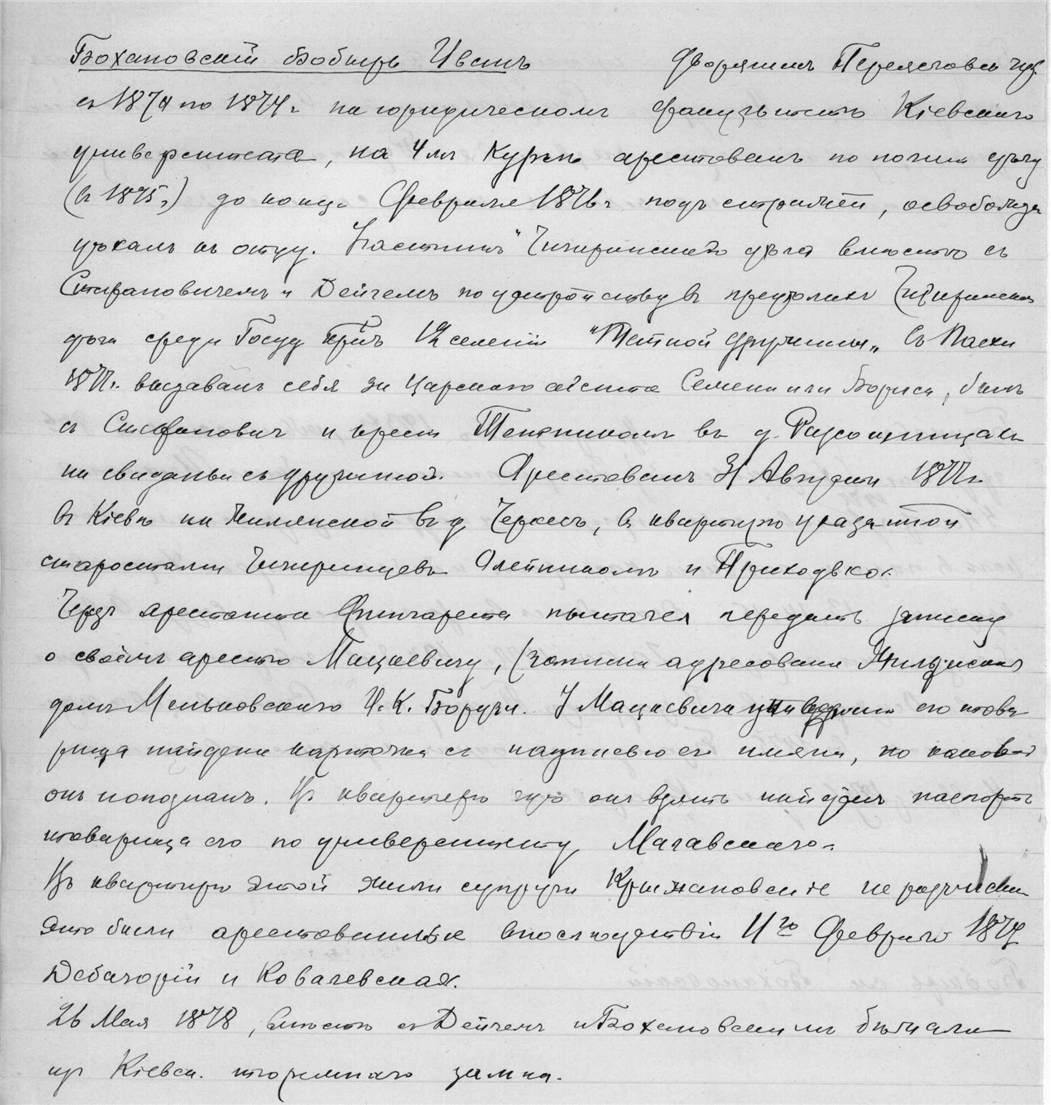 Бохановскій Бобырь Иванъ Дворянинъ Полтавской губ
съ 1870 по 1874 г на юридическомъ факультетѣ Кіевскаго
университета, на 4мъ Курсѣ арестованъ по
(въ 1875 г) до конца Февраля 1876 г подъ стражей, освобожден
уѣхалъ къ отцу. Участникъ Чигиринскаго дѣла вмѣстѣ съ
Стефановичемъ и Дейчемъ по устройству въ Чигиринск
среди Госуд "Тайной Дружины" Съ Пасхи
1877 г. выдавалъ себя за Царскаго Семена или Бориса, былъ
съ Стефанович и крест Тененикомъ въ д.
на свиданьи съ дружиной. Арестованъ 31 Августа 1877 г
въ Кіевѣ на Жилянской въ д Черкесъ, въ квартирѣ указанной
старостами Чигиринцевъ Олейникомъ и Приходько.
Черезъ арестанта пытался передать записку
о своёмъ арестѣ Мацаевичу, (записка адресована Жилянская
домъ Меньковскаго И. К. У Мацаевича его това
рища найдена карточка съ надписью его имени, по каковой
онъ опознанъ. Въ квартирѣ гдѣ онъ взятъ найденъ паспортъ
товарища его по университету
Въ квартирѣ этой жили супруги Крыжановскіе
Это были арестованные впослѣдствіи 11го Февраля 1879
Дебагорій и Ковалевская.
26 Мая 1878, вмѣстѣ съ Дейчемъ и Бохановскимъ бѣжали
изъ Кіевск. тюремнаго замка.